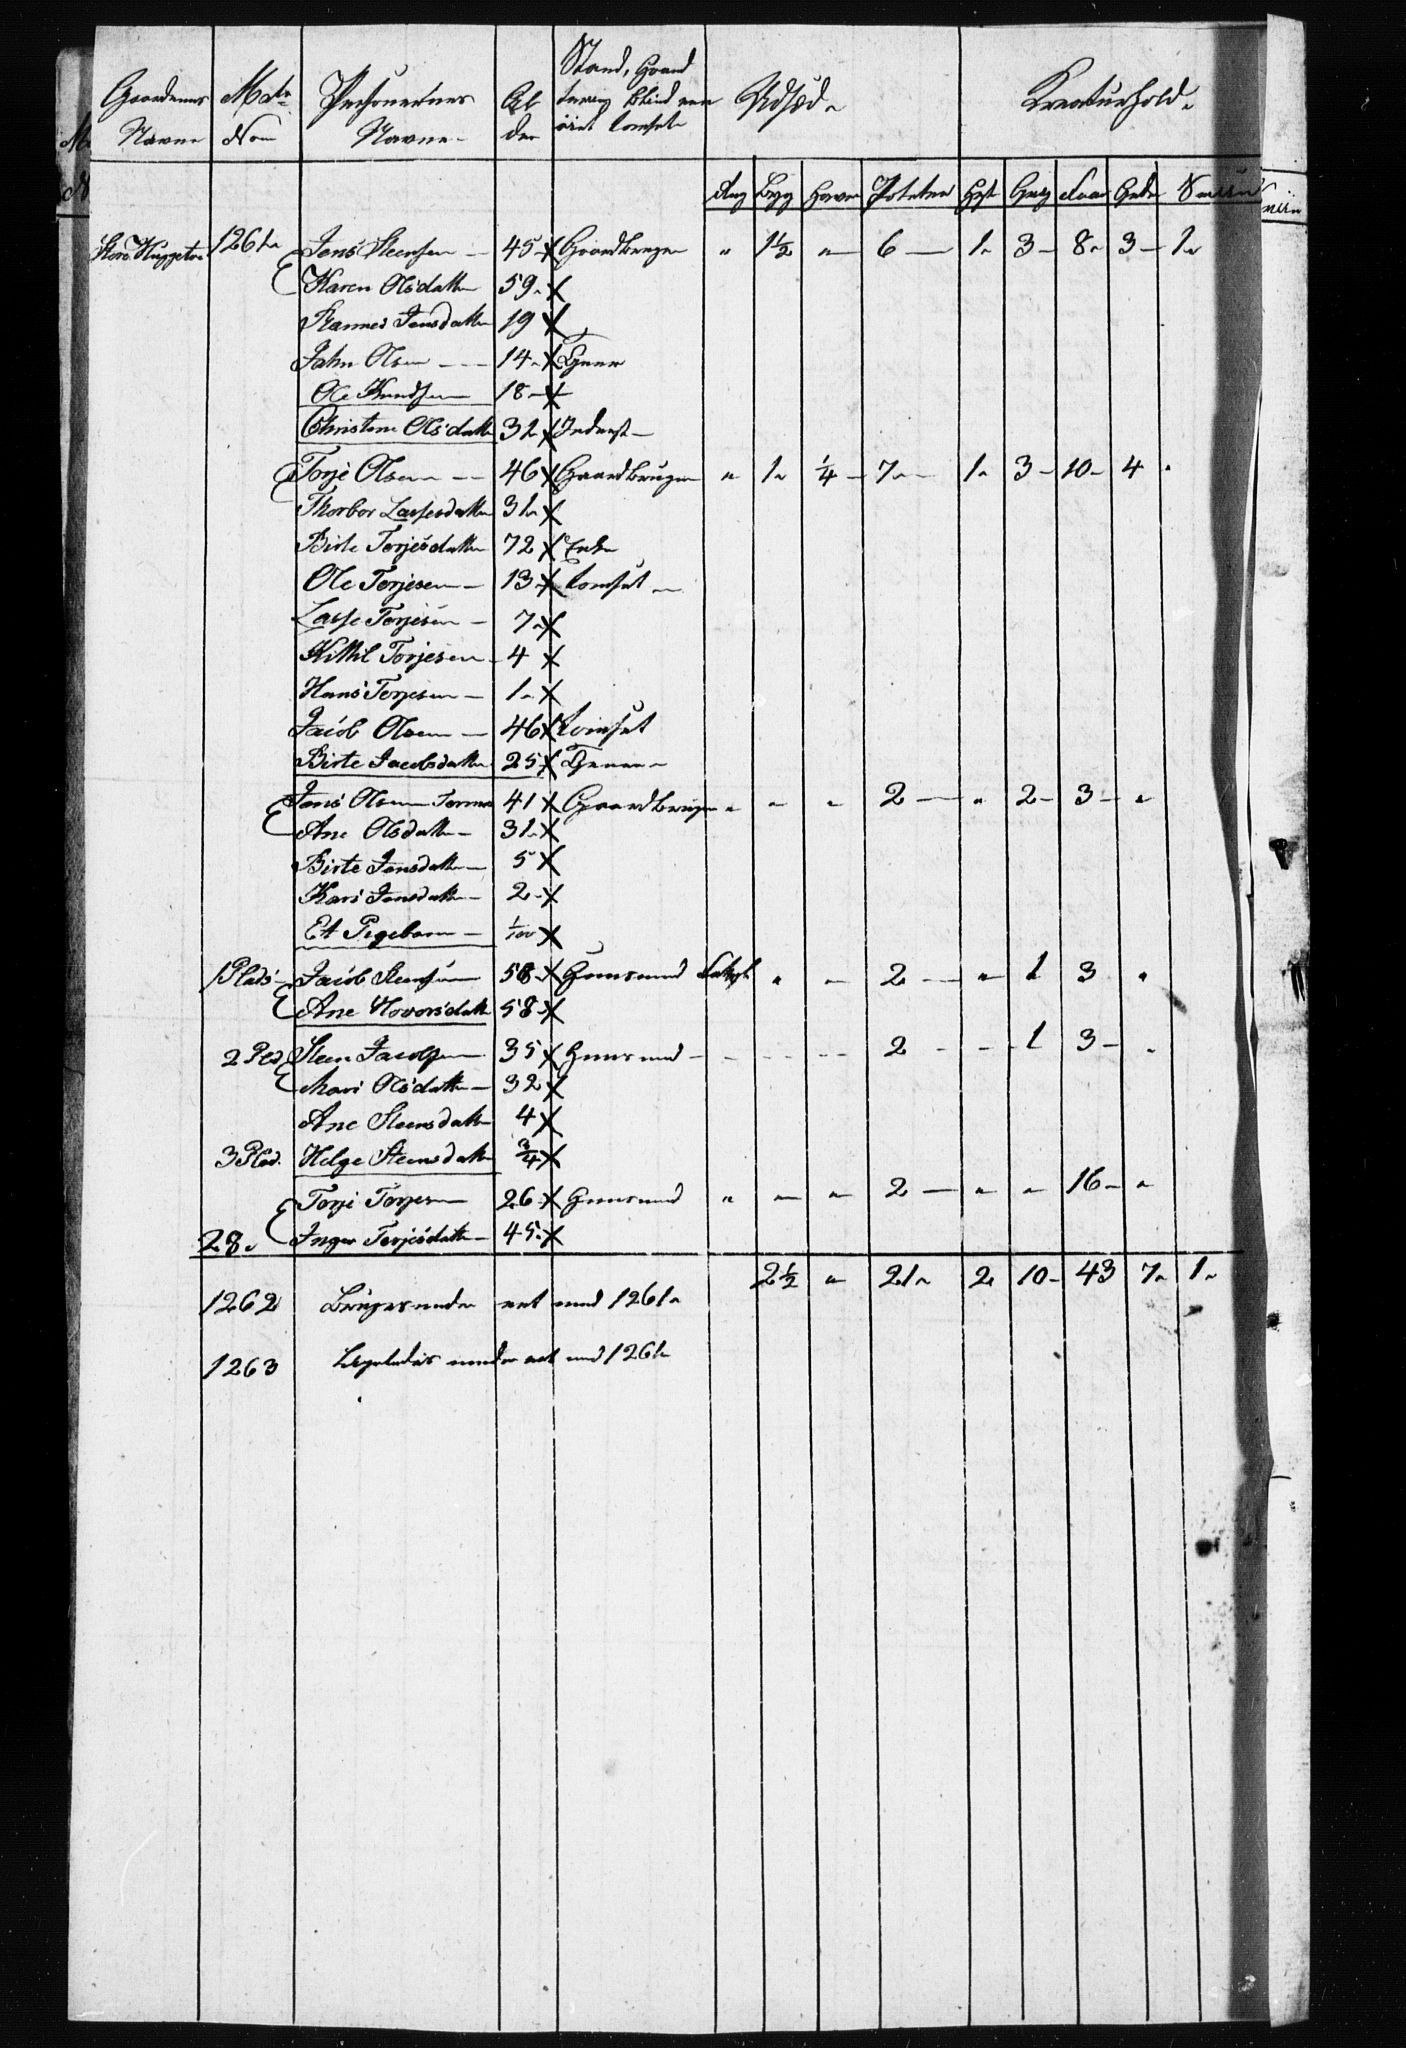 Gaardenes Navne | Matr. No | Personernes Navne | Alder | Stand, Haand | Udsæd | Kreaturhold
Rug | Byg | Havre | Poteter | Hest | Faar | Sviin
1261 | Jens Steensen | 45 | Gaardbruger | " | 1½ | " | 6 | 1 | 3 | 8 | 3 | 1
Karen Olsdatter | 59
Jensdatter | 19
John Olsen | 14 | Tjener
Ole Knudsen | 18
Christine Olsdatter | 32 | Inderst
Torje Olsen | 46 | Gaardbruger | " | 1 | ¼ | 7 | 1 | 3 | 10 | 4 | "
Thorbor Lassesdatter | 31
Birte Torjesdatter | 72 | Enke
Ole Torjesen | 13
Lasse Torjesen | 7
Kittil Torjesen | 4
Hans Torjesen | 1
Jacob Olsen | 46
Birte Jacobsdatter | 25 | Tjener
Jens Olsen | 41 | Gaardbruger | " | " | " | 2 | " | 2 | 3 | "
Ane Olsdatter | 31
Birte Jensdatter | 5
Kari Jensdatter | 2
Et Pigebarn
1 Plads | Jacob Steensen | 58 | Huusmand | " | " | 2 | " | 1 | 3 | "
Ane Hovorsdatter | 58
2 Pld. | Steen Jacobsen | 35 | Huusmand | 2 | 1 | 3 | "
Mari Olsdatter | 32
Ane Steensdatter | 4
3 Plad. | Helge Steensdatter | ¾
Torje Torjesen | 26 | Huusmand | " | " | " | 2 | " | " | 16 | "
28 | Inger Torjesdatter | 45
2½ | " | 21 | 2 | 10 | 43 | 7 | 1
1262 | Bruges under eet med 1261
1263 | under eet med 1261